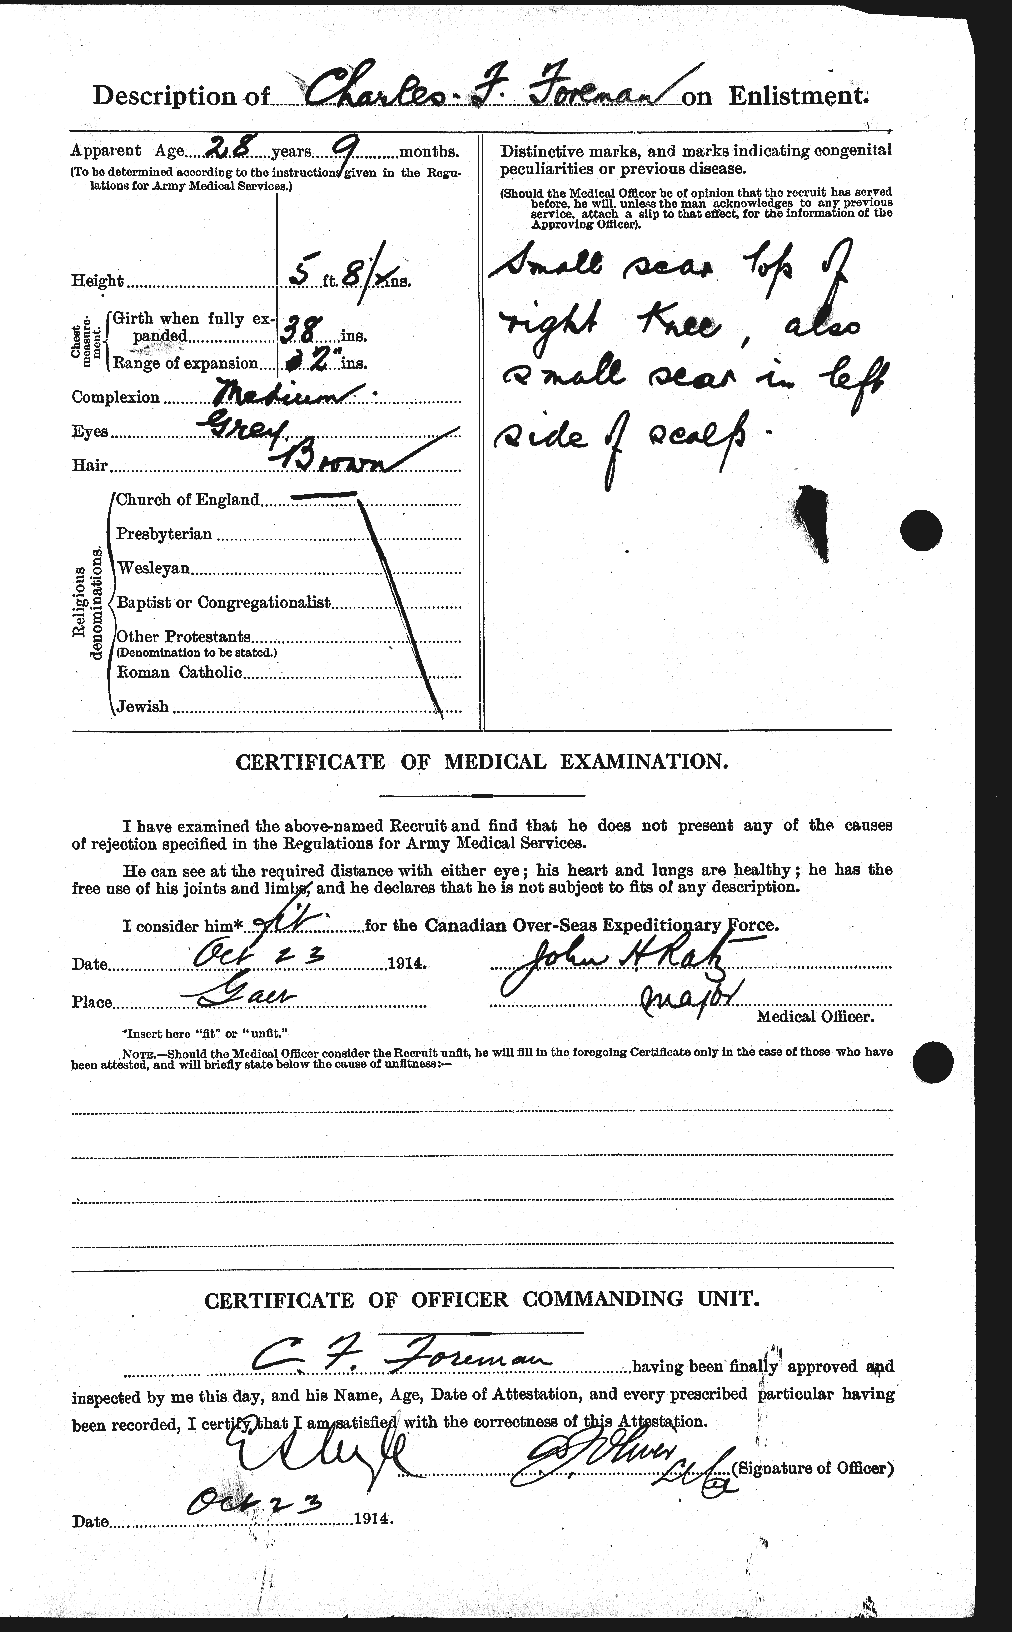 Description of Charles. F. Foreman on Enlistment.
Apparent Age 28 years 9 months.
(To be determined according to the instructions given in the Regu-
lations for Army Medical Services.)
Height 5 ft. 8 ins.
Chest measure-ment.
Girth when fully ex-
panded 38 ins.
Range of expansion 2" ins.
Complexion Medium.
Eyes Grey
Hair Brown
Religious denominations.
Church of England
Presbyterian
Wesleyan
Baptist or Congregationalist
Other Protestants
(Denomination to be stated.)
Roman Catholic
Jewish
Distinctive marks, and marks indicating congenital
peculiarities or previous disease.
(Should the Medical Officer be of opinion that the recruit has served
before, he will, unless the man acknowledges to any previous
service, attach a slip to that effect, for the information of the
Approving Officer).
Small scar top of
right Knee, also
small scar in left
side of scalp.
CERTIFICATE OF MEDICAL EXAMINATION.
I have examined the above-named Recruit and find that he does not present any of the causes
of rejection specified in the Regulations for Army Medical Services.
He can see at the required distance with either eye; his heart and lungs are healthy; he has the
free use of his joints and limbs, and he declares that he is not subject to fits of any description.
I consider him* fit for the Canadian Over-Seas Expeditionary Force.
Date Oct 23 1914. John H Ratz
Place Major
Medical Officer.
*Insert here "fit" or "unfit."
NOTE.—Should the Medical Officer consider the Recruit unfit, he will fill in the foregoing Certificate only in the case of those who have
been attested, and will briefly state below the cause of unfitness:—
CERTIFICATE OF OFFICER COMMANDING UNIT.
C. F. Foreman having been finally approved and
inspected by me this day, and his Name, Age, Date of Attestation, and every prescribed particular having
been recorded, I certify that I am satisfied with the correctness of this Attestation.
(Signature of Officer)
Date Oct 23 1914.